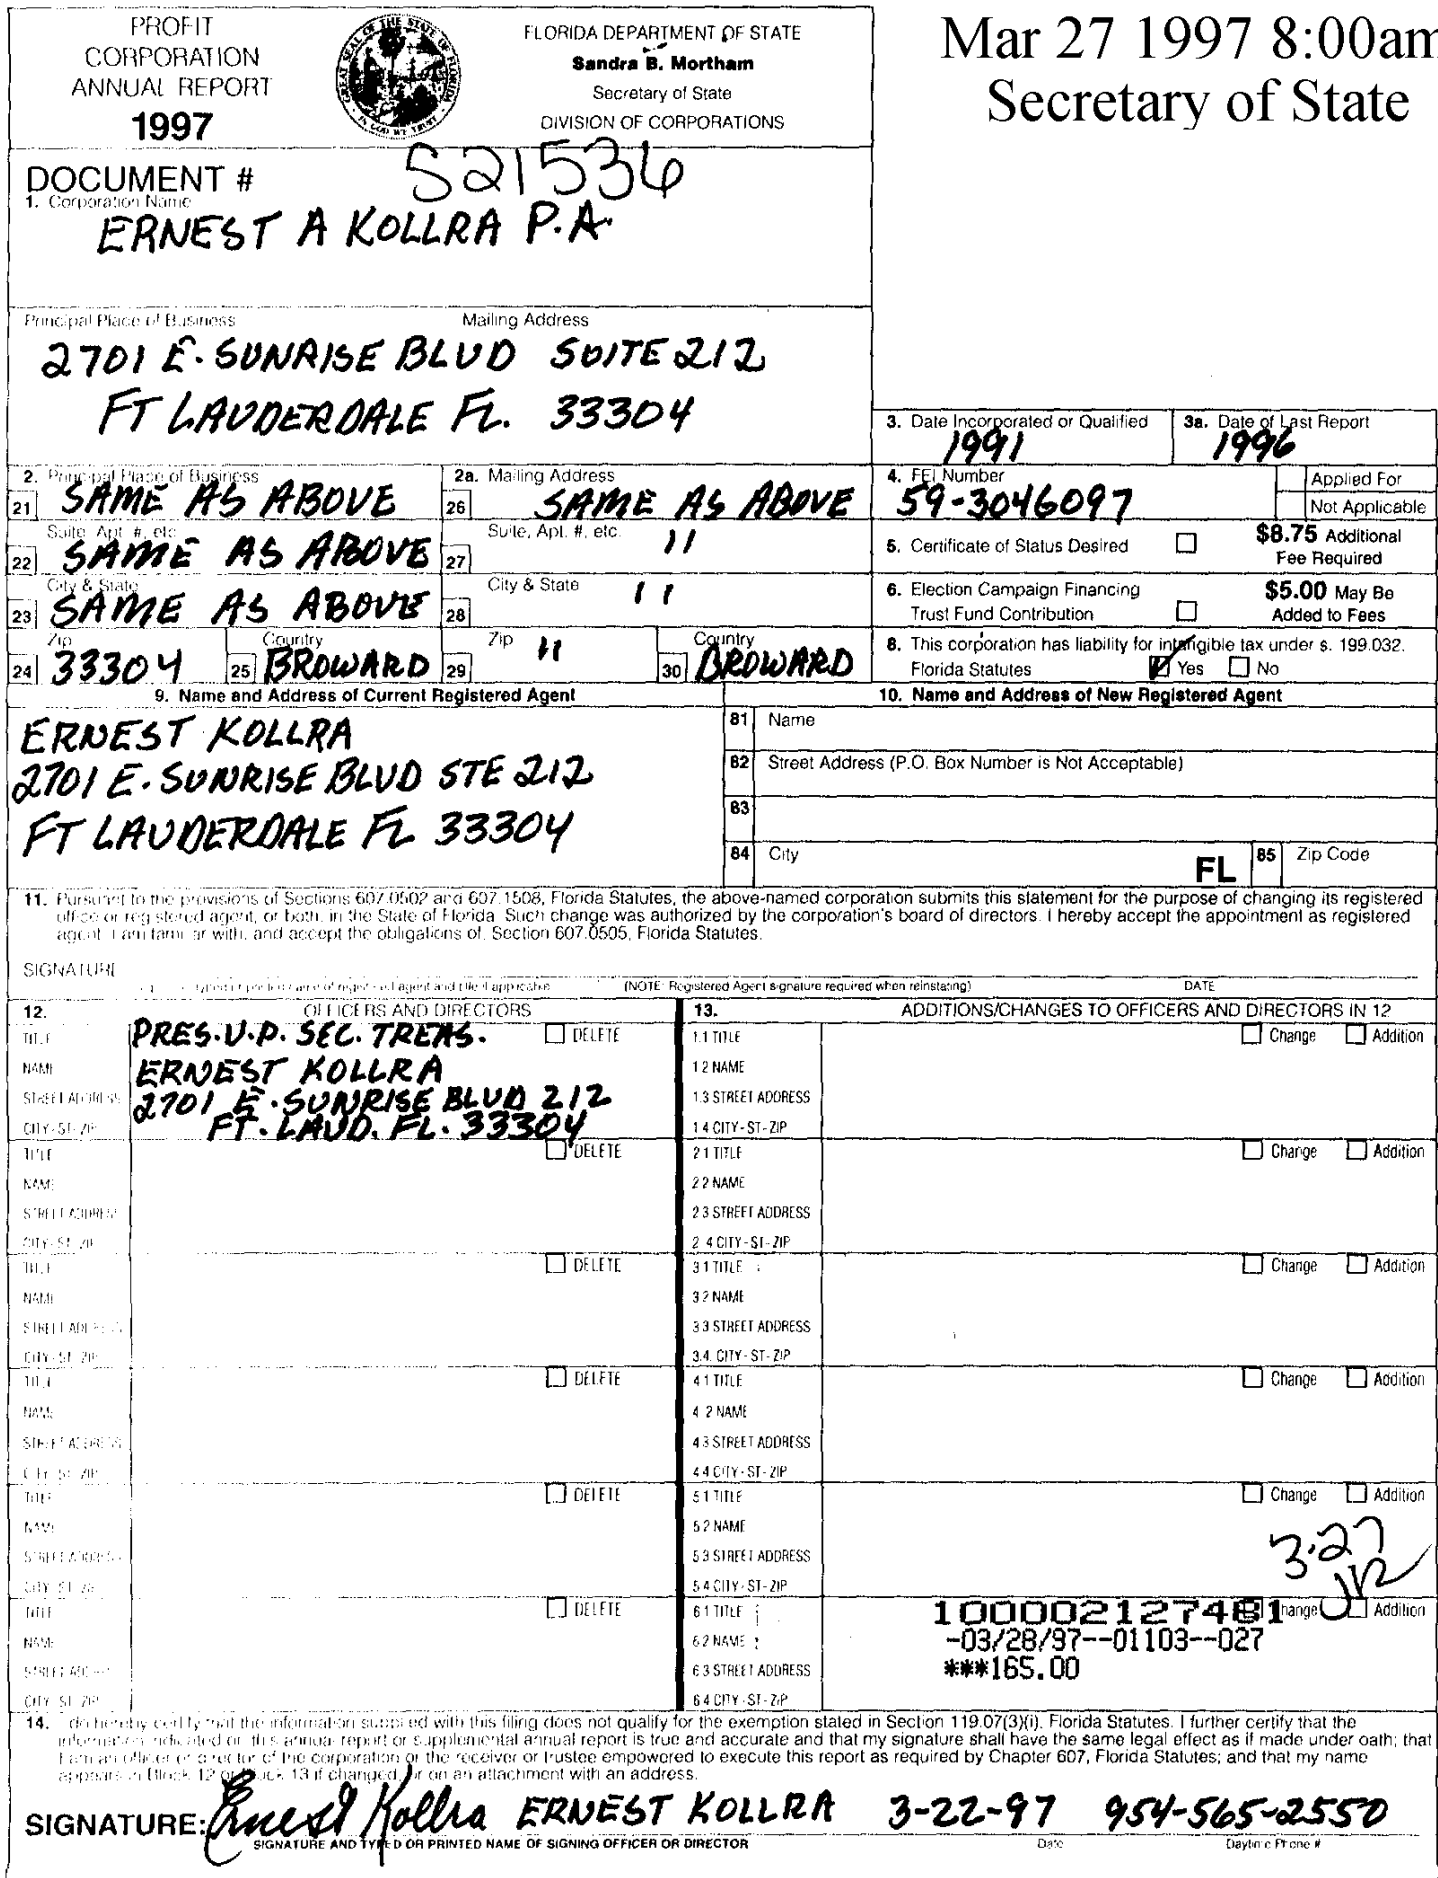 PROFIT
CORPORATION
ANNUAL REPORT
1997
FLORIDA DEPARTMENT OF STATE
Sandra B. Mortham
Secretary of State
DIVISION OF CORPORATIONS
Mar 27 1997 8:00am
Secretary of State
DOCUMENT # S21536
1. Corporation Name
ERNEST A KOLLRA P.A.
Principal Place of Business Mailing Address
2701 E. SUNRISE BLVD SUITE 212
FT LAUDERDALE FL. 33304
3. Date Incorporated or Qualified
1991
3a. Date of Last Report
1996
2. Principal Place of Business
21 SAME AS ABOVE
2a. Mailing Address
26 SAME AS ABOVE
4. FEI Number
59-3046097
Applied For
Not Applicable
Suite, Apt. #, etc.
22 SAME AS ABOVE
Suite, Apt. #, etc.
27 11
5. Certificate of Status Desired
$8.75 Additional
Fee Required
City & State
23 SAME AS ABOVE
City & State
28 11
6. Election Campaign Financing
Trust Fund Contribution
$5.00 May Be
Added to Fees
Zip
24 33304
Country
25 BROWARD
Zip
29 11
Country
30 BROWARD
8. This corporation has liability for intangible tax under s. 199.032,
Florida Statutes Yes No
9. Name and Address of Current Registered Agent
ERNEST KOLLRA
2701 E. SUNRISE BLVD STE 212
FT LAUDERDALE FL 33304
10. Name and Address of New Registered Agent
81 Name
82 Street Address (P.O. Box Number is Not Acceptable)
83
84 City FL 85 Zip Code
11. Pursuant to the provisions of Sections 607.0502 and 607.1508, Florida Statutes, the above-named corporation submits this statement for the purpose of changing its registered
office or registered agent, or both, in the State of Florida. Such change was authorized by the corporation's board of directors. I hereby accept the appointment as registered
agent. I am familiar with, and accept the obligations of, Section 607.0505, Florida Statutes.
SIGNATURE
typed or printed name of registered agent and title if applicable (NOTE: Registered Agent signature required when reinstating) DATE
12. OFFICERS AND DIRECTORS
13. ADDITIONS/CHANGES TO OFFICERS AND DIRECTORS IN 12
TITLE PRES. V.P. SEC. TREAS. DELETE
NAME ERNEST KOLLRA
STREET ADDRESS 2701 E. SUNRISE BLVD 212
CITY-ST-ZIP FT. LAUD. FL. 33304
1.1 TITLE Change Addition
1.2 NAME
1.3 STREET ADDRESS
1.4 CITY-ST-ZIP
TITLE DELETE
NAME
STREET ADDRESS
CITY-ST-ZIP
2.1 TITLE Change Addition
2.2 NAME
2.3 STREET ADDRESS
2.4 CITY-ST-ZIP
TITLE DELETE
NAME
STREET ADDRESS
CITY-ST-ZIP
3.1 TITLE Change Addition
3.2 NAME
3.3 STREET ADDRESS
3.4. CITY-ST-ZIP
TITLE DELETE
NAME
STREET ADDRESS
CITY-ST-ZIP
4.1 TITLE Change Addition
4.2 NAME
4.3 STREET ADDRESS
4.4 CITY-ST-ZIP
TITLE DELETE
NAME
STREET ADDRESS
CITY-ST-ZIP
5.1 TITLE Change Addition
5.2 NAME
5.3 STREET ADDRESS
5.4 CITY-ST-ZIP
3.27
TITLE DELETE
NAME
STREET ADDRESS
CITY-ST-ZIP
6.1 TITLE Change Addition
6.2 NAME
6.3 STREET ADDRESS
6.4 CITY-ST-ZIP
100002127481
-03/28/97--01103--027
***165.00
14. I do hereby certify that the information supplied with this filing does not qualify for the exemption stated in Section 119.07(3)(i), Florida Statutes. I further certify that the
information indicated on this annual report or supplemental annual report is true and accurate and that my signature shall have the same legal effect as if made under oath; that
I am an officer or director of the corporation or the receiver or trustee empowered to execute this report as required by Chapter 607, Florida Statutes; and that my name
appears in Block 12 or Block 13 if changed, or on an attachment with an address.
SIGNATURE: Ernest Kollra ERNEST KOLLRA 3-22-97 954-565-2550
SIGNATURE AND TYPED OR PRINTED NAME OF SIGNING OFFICER OR DIRECTOR Date Daytime Phone #